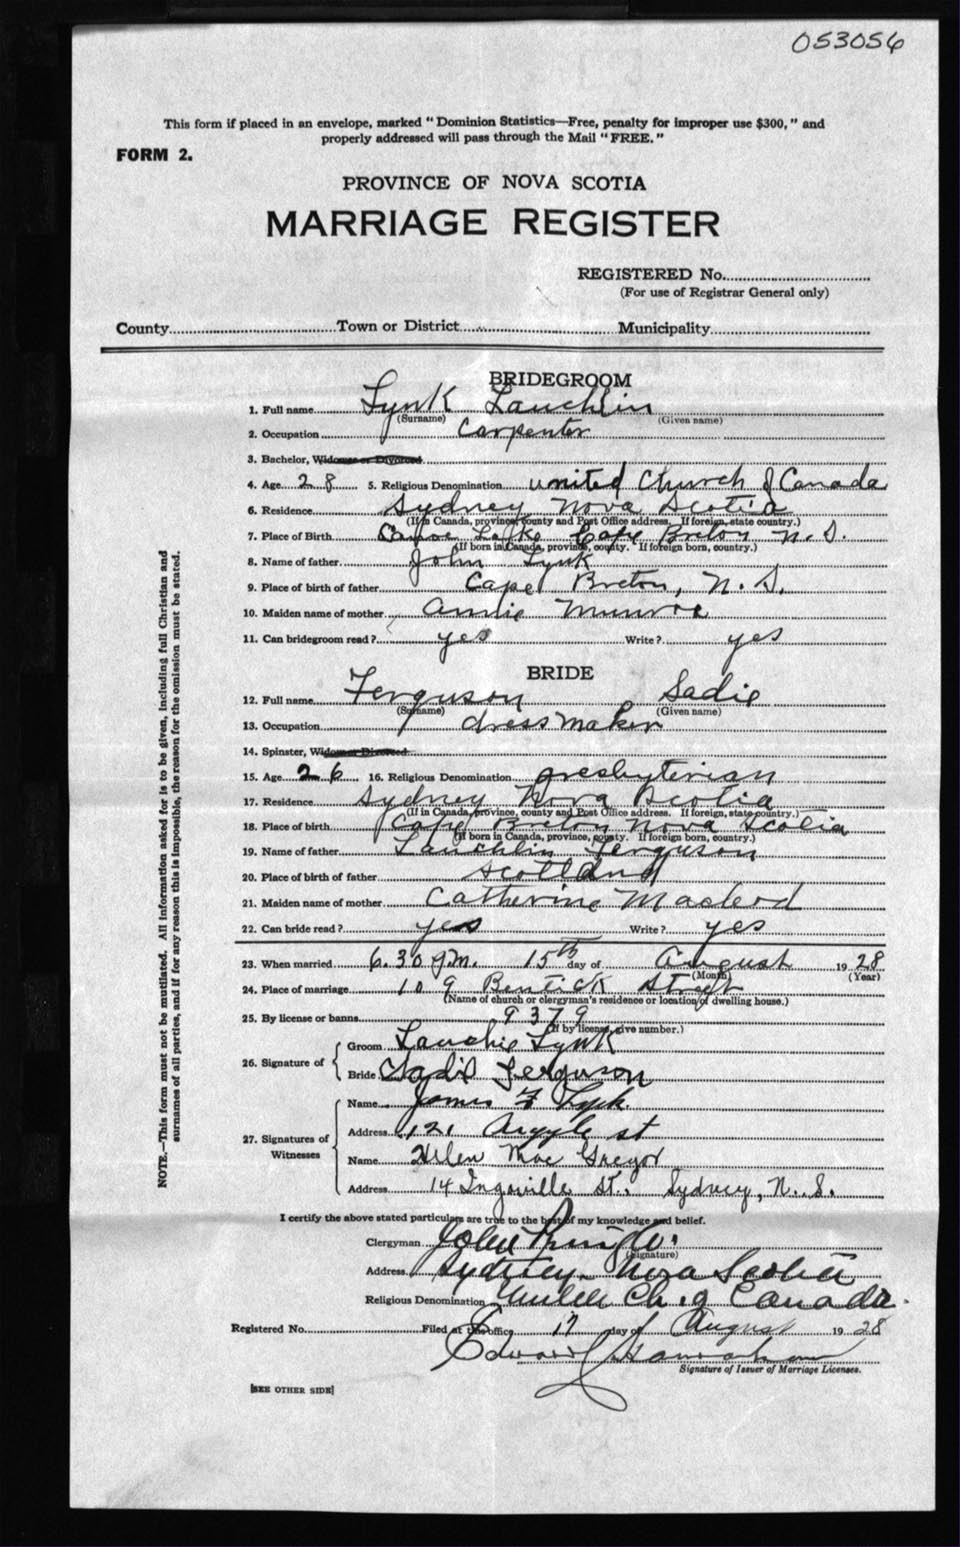 053056
This form if placed in an envelope, marked "Dominion Statistics—Free, penalty for improper use $300," and
properly addressed will pass through the Mail "FREE."
FORM 2.
PROVINCE OF NOVA SCOTIA
MARRIAGE REGISTER
REGISTERED No.
(For use of Registrar General only)
County Town or District Municipality
BRIDEGROOM
1. Full name Lynk Lauchlin
(Surname) (Given name)
2. Occupation Carpenter
3. Bachelor, Widower or Divorced
4. Age 28 5. Religious Denomination United Church of Canada
6. Residence Sydney Nova Scotia
(If in Canada, province, county and Post Office address. If foreign, state country.)
7. Place of Birth Canoe Lake Cape Breton N.S.
(If born in Canada, province, county. If foreign born, country.)
8. Name of father John Lynk
9. Place of birth of father Cape Breton, N.S.
10. Maiden name of mother Annie Munroe
11. Can bridegroom read? yes Write? yes
BRIDE
12. Full name Ferguson Sadie
(Surname) (Given name)
13. Occupation dressmaker
14. Spinster, Widow or Divorced
15. Age 26 16. Religious Denomination presbyterian
17. Residence Sydney Nova Scotia
(If in Canada, province, county and Post Office address. If foreign, state country.)
18. Place of birth Cape Breton Nova Scotia
(If born in Canada, province, county. If foreign born, country.)
19. Name of father Lauchlin Ferguson
20. Place of birth of father Scotland
21. Maiden name of mother Catherine Macleod
22. Can bride read? yes Write? yes
23. When married 6.30 p.m. 15th day of August 1928
(Month) (Year)
24. Place of marriage 109 Bentick Street
(Name of church or clergyman's residence or location of dwelling house.)
25. By license or banns 9379
(If by license, give number.)
26. Signature of
Groom Lauchie Lynk
Bride Sadie Ferguson
27. Signatures of Witnesses
Name James F Lynk
Address 121 Argyle st
Name Helen MacGregor
Address 14 Ingaville St. Sydney, N.S.
I certify the above stated particulars are true to the best of my knowledge and belief.
Clergyman John Pringle.
(Signature)
Address Sydney. Nova Scotia
Religious Denomination United Ch. of Canada.
Registered No. Filed at this office 17 day of August 1928
Edward
Signature of Issuer of Marriage Licenses.
[SEE OTHER SIDE]
NOTE.—This form must not be mutilated. All information asked for is to be given, including full Christian and
surnames of all parties, and if for any reason this is impossible, the reason for the omission must be stated.